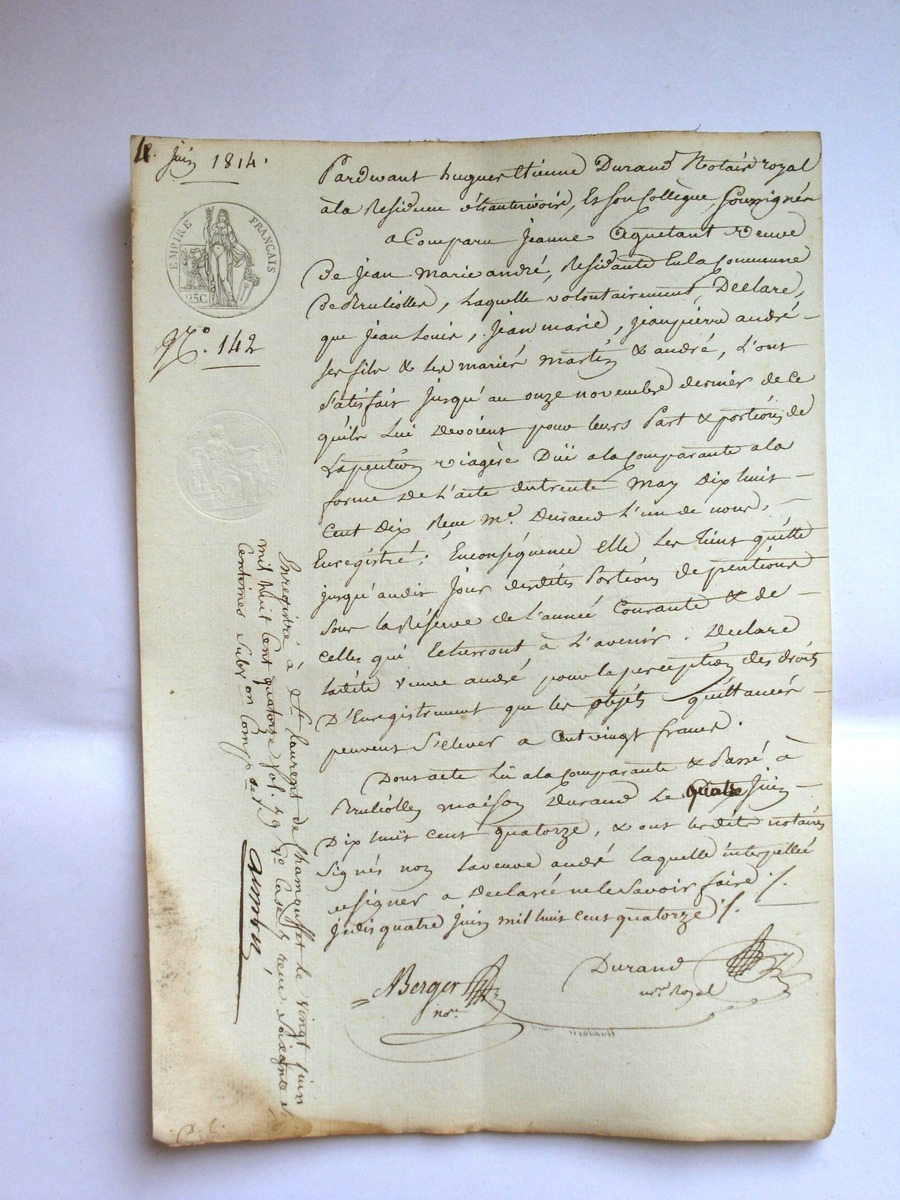 4. juin 1814.
EMPIRE FRANÇAIS
25 C.
N.o 142
Pardevant hugues Etienne Durand Notaire royal
à la Residence d'Ste, Et son Collègue Soussignés
a Comparu Jeanne Aguetant veuve
De Jean Marie andré, Residante En la Commune
De Brulioles, Laquelle volontairement Declare,
que Jean Louis, Jean marie, jean pierre andré
ses fils & les mariés martin & andré, L'ont
Satisfait Jusqu'au onze novembre dernier de ce
qu'ils Lui devoient pour leurs Part & portions de
La pention viagère Düe a la Comparante a la
forme De L'acte du trente May Dix huit
Cent Dix Reçu Me. Durand L'un de nous,
Enregistré; Enconséquence elle Les tient quitte
jusqu'audit Jour desdites Portions de pentions
Sous la Réserve de L'année Courante & de
Celles qui Echerront à L'avenir. Declare
Ladite veuve andré pour la perception des droits
D'Enregistrement que les objets quittancés
peuvent S'elever a Cent vingt francs.
Dont acte Lû a la Comparante & Passé à
Brulioles maison Durand Le quatre Juin
Dix huit cent quatorze, & ont lesdits notaires
Signés non la veuve andré laquelle interpellée
de signer a Declaré ne le Savoir faire ./.
Judis quatre juin mil huit cent quatorze ./.
Berger
nore.
Durand
nore. Royal
Enregistré à St. Laurent de Chamousset le vingt juin
mil huit Cent quatorze fol. 79 vo. Case 5 reçu Soixante &
Centimes Subv.on Comp.se